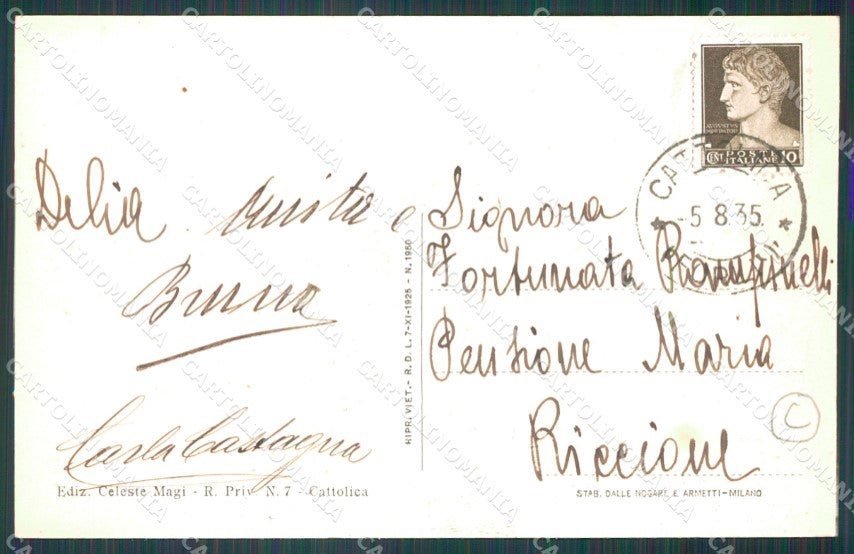 Delia Anita e
Bruna
Carla Castagna
Ediz. Celeste Magi - R. Priv. N. 7 - Cattolica
RIPR. VIET. - R. D. L. 7-XI-1925 - N. 1950
POSTE
ITALIANE
CENT 10
CATTOLICA
-5.8.35
Signora
Fortunata
Pensione Maria
Riccione
C
STAB. DALLE NOGARE E ARMETTI-MILANO
CARTOLINOMANIA